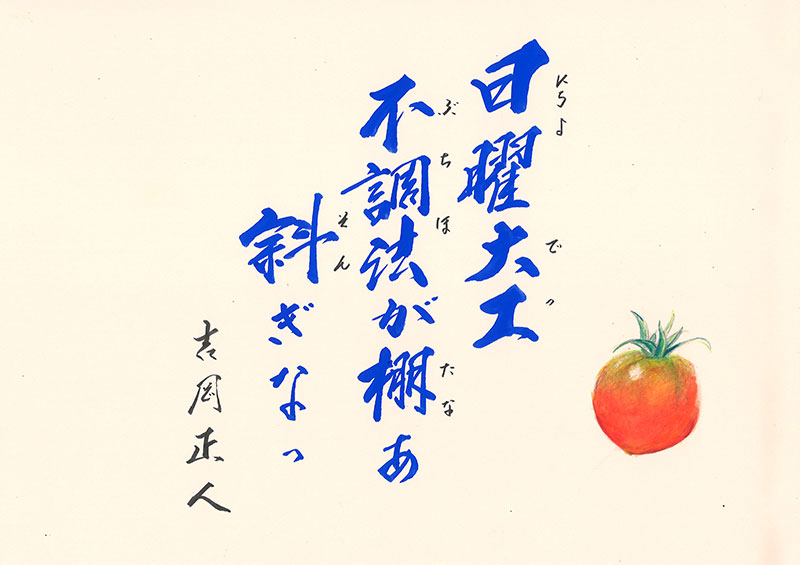 日曜大工
にちよ
でっ
不調法が棚あ
ぶちほ
たな
斜ぎなっ
そん
吉岡正人